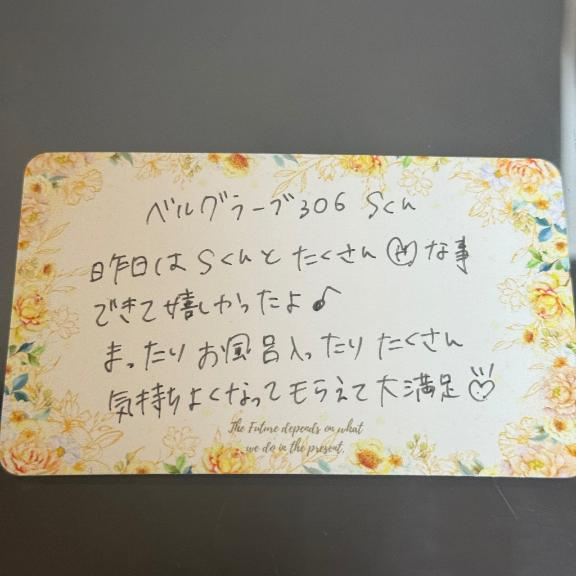 ベルグラーブ306 Sくん
昨日はSくんとたくさんHな事
できて嬉しかったよ♪
まったりお風呂入ったりたくさん
気持ちよくなってもらえて大満足♡
The Future depends on what
we do in the present.